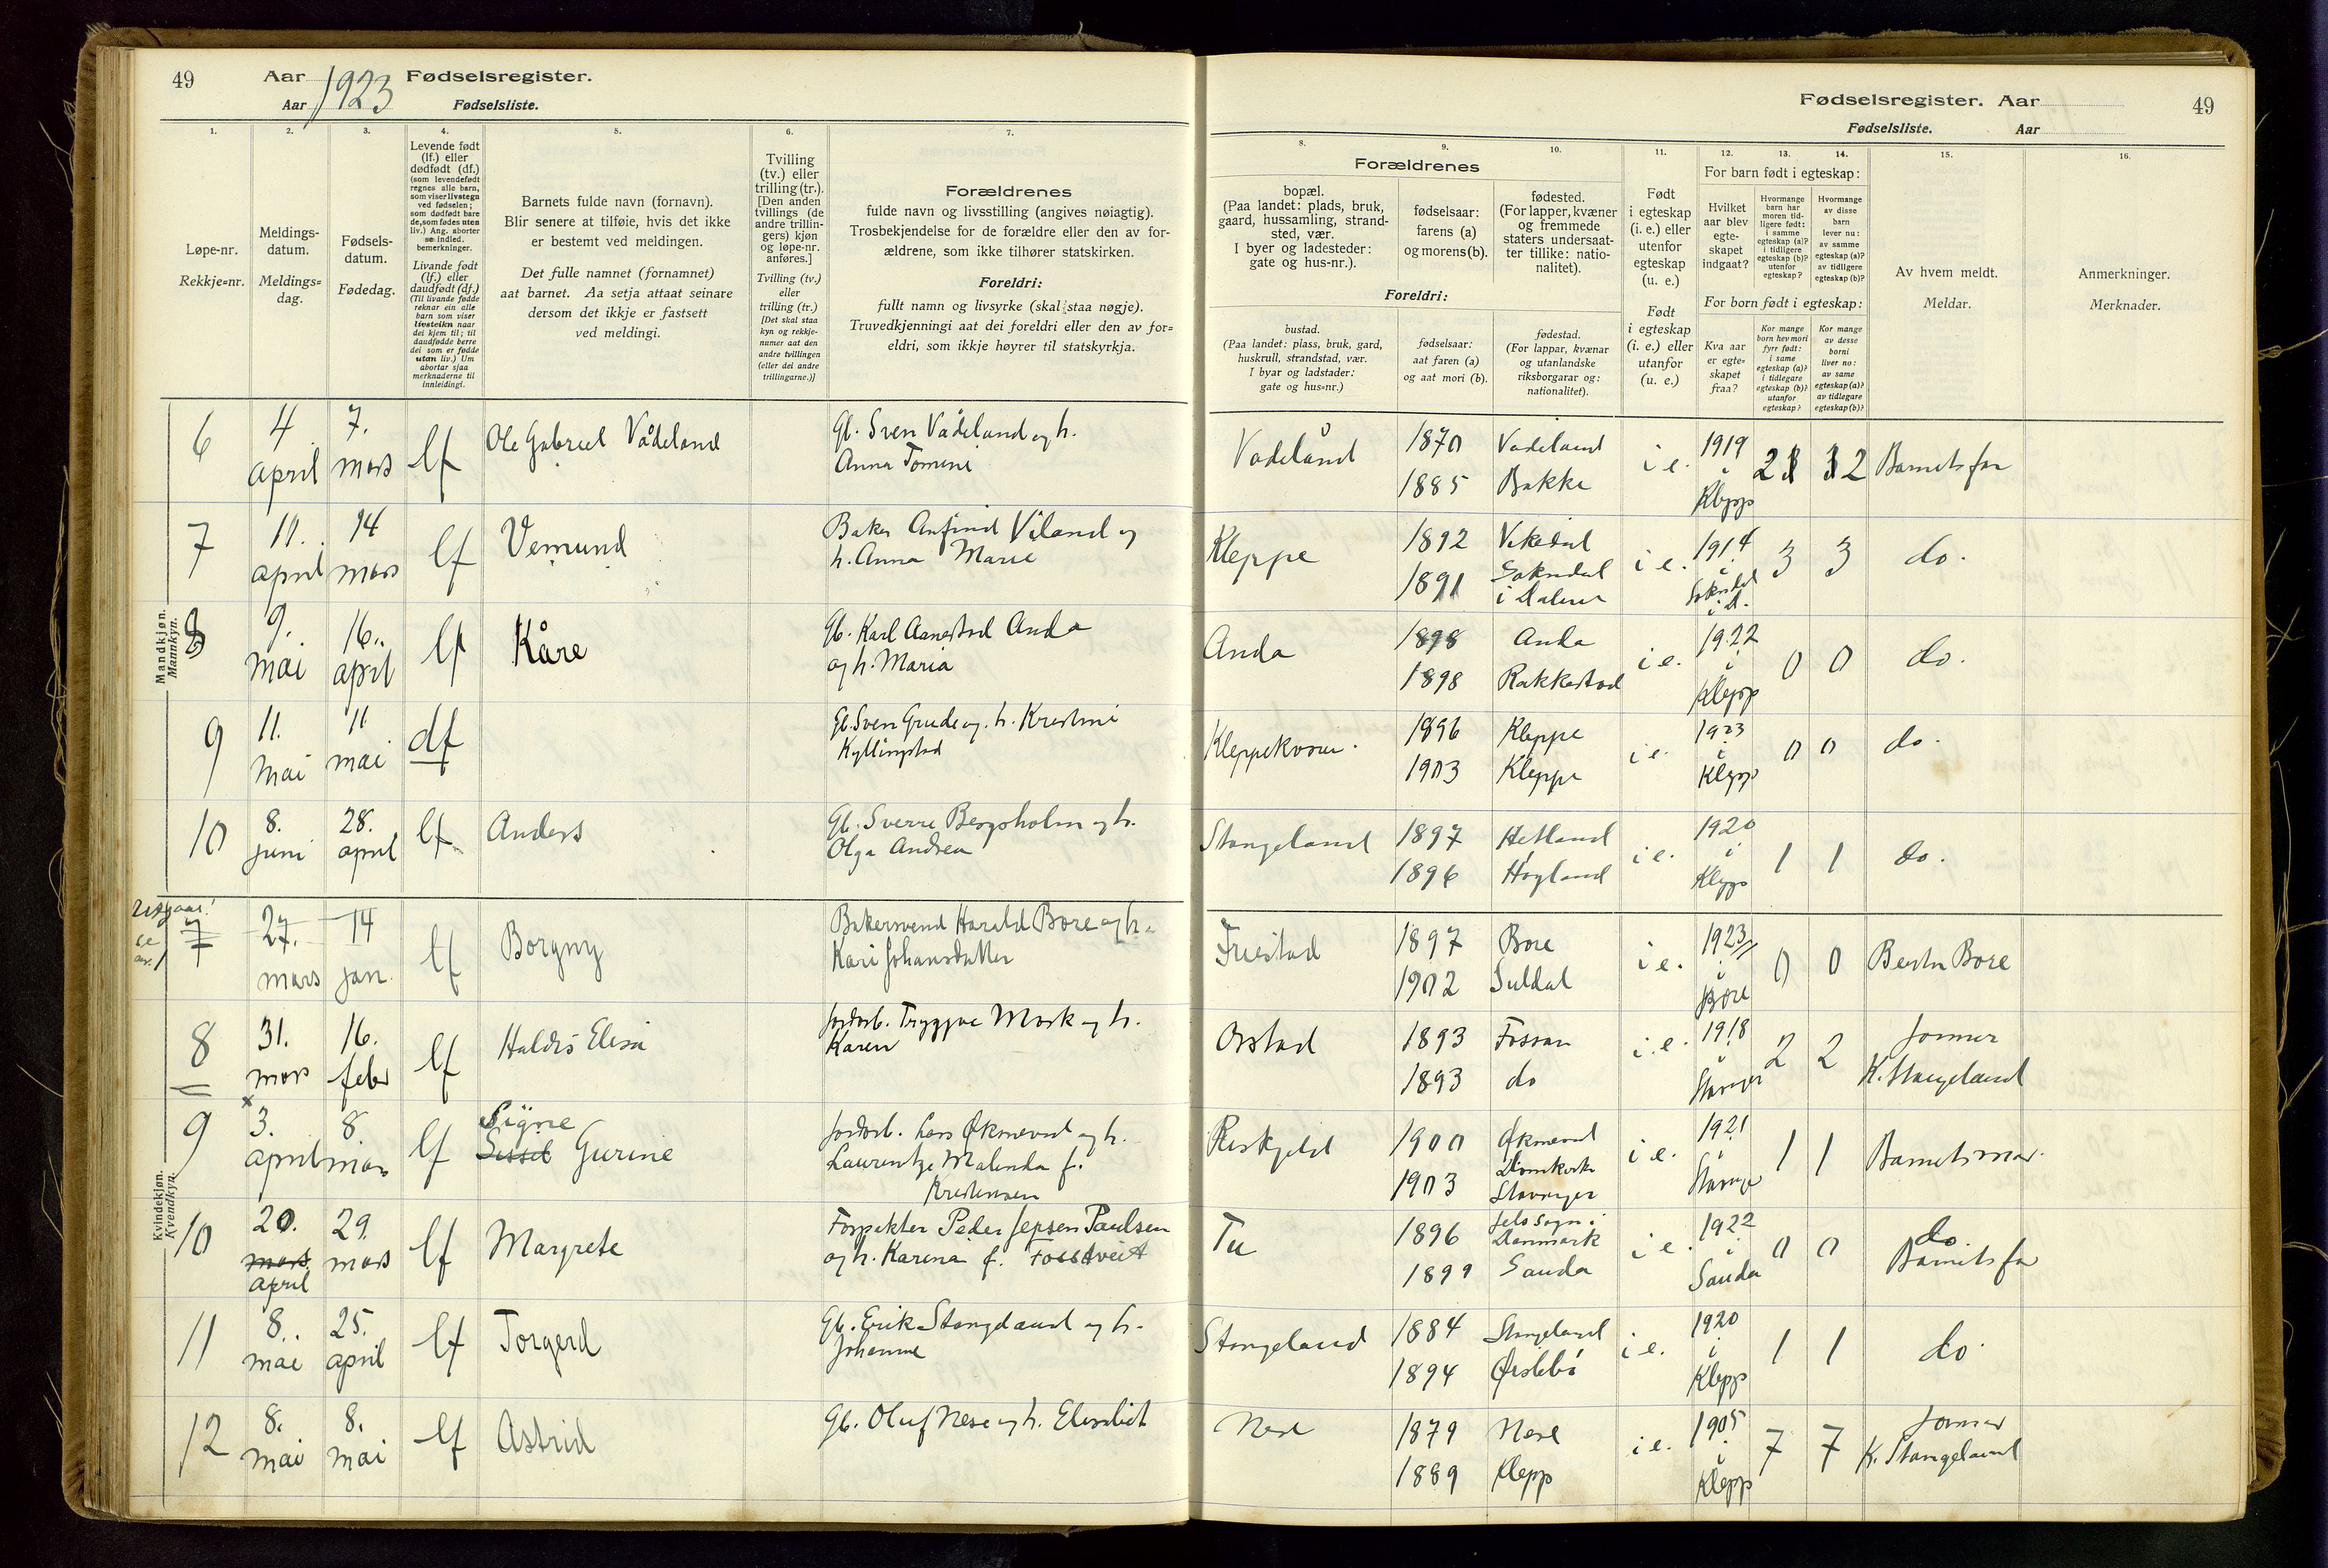 49
Aar 1923 Fødselsregister.
Aar Fødselsliste.
1.
2.
3.
4.
5.
6.
7.
Løpe-nr.
Rekkje=nr.
Meldings-
datum.
Meldings=
dag.
Fødsels-
datum.
Fødedag.
Levende født
(lf.) eller
dødfødt (df.)
(som levendefødt
regnes alle barn,
som viser livstegn
ved fødselen;
som dødfødt bare
de, som fødes uten
liv.) Ang. aborter
se indled.
bemerkninger.
Livande født
(lf.) eller
daudfødt (df.)
(Til livande fødde
reknar ein alle
barn som viser
livsteikn naar
dei kjem til; til
daudfødde berre
dei som er fødde
utan liv.) Um
abortar sjaa
merknaderne til
innleidingi.
Barnets fulde navn (fornavn).
Blir senere at tilføie, hvis det ikke
er bestemt ved meldingen.
Det fulle namnet (fornamnet)
aat barnet. Aa setja attaat seinare
dersom det ikkje er fastsett
ved meldingi.
Tvilling
(tv.) eller
trilling (tr.).
[Den anden
tvillings (de
andre trillin-
gers) kjøn
og løpe-nr.
anføres.]
Tvilling (tv.)
eller
trilling (tr.)
[Det skal staa
kyn og rekkje-
numer aat den
andre tvillingen
(eller dei andre
trillingarne.)]
Forældrenes
fulde navn og livsstilling (angives nøiagtig).
Trosbekjendelse for de forældre eller den av for-
ældrene, som ikke tilhører statskirken.
Foreldri:
fullt namn og livsyrke (skal staa nøgje).
Truvedkjenningi aat dei foreldri eller den av for=
eldri, som ikkje høyrer til statskyrkja.
Mandkjøn.
Mannkyn.
6
4
april
7.
mars
lf
Ole Gabriel Vådeland
Gb. Sven Vådeland og h.
Anna Tomine
7
11.
april
14
mars
lf
Vemund
Baker Anfind Viland og
h. Anna Marie
8
9.
mai
16.
april
lf
Kåre
Gb. Karl Aanestad Anda
og h. Maria
9
11.
mai
11
mai
df
Gb. Sven Grude og h. Kristine
Kyllingstad
10
8.
juni
28.
april
lf
Anders
Gb. Sverre Bergsholm og h.
Olga Andrea
Kvindekjøn.
Kvendkyn.
Utgaar!
7
27.
mars
14
jan.
lf
Borgny
Bakersvend Harald Bore og h.
Kari Johansdatter
8
31.
mars
16.
febr
lf
Haldis Elisa
Jordarb. Tryggve Mosk og h.
Karen
9
3.
april
8
mars
lf
Signe
Sissel Gurine
Jordarb. Lars Øksnevad og h.
Laurentze Malinda f.
Kristensen
10
20.
mars
april
29.
mars
lf
Margrete
Forpakter Peder Jepsen Paulsen
og h. Karina f. Fosstveit
11
8.
mai
25.
april
lf
Torgerd
Gb. Erik Stangeland og h.
Johanne
12
8.
mai
8.
mai
lf
Astrid
Gb. Oluf Nese og h. Elisabet
Fødselsregister. Aar
Fødselsliste. Aar
49
8.
9.
10.
11.
12.
13.
14.
15.
16.
Forældrenes
bopæl.
(Paa landet: plads, bruk,
gaard, hussamling, strand-
sted, vær.
I byer og ladesteder:
gate og hus-nr.).
fødselsaar:
farens (a)
og morens (b).
fødested.
(For lapper, kvæner
og fremmede
staters undersaat-
ter tillike: natio-
nalitet).
Foreldri:
bustad.
(Paa landet: plass, bruk, gard,
huskrull, strandstad, vær.
I byar og ladstader:
gate og hus-nr.)
fødselsaar:
aat faren (a)
og aat mori (b).
fødestad.
(For lappar, kvænar
og utanlandske
riksborgarar og:
nationalitet).
Født
i egteskap
(i. e.) eller
utenfor
egteskap
(u. e.)
Født
i egteskap
(i. e.) eller
utanfor
(u. e.)
For barn født i egteskap:
Hvilket
aar blev
egte-
skapet
indgaat?
Hvormange
barn har
moren tid-
ligere født:
i samme
egteskap (a)?
i tidligere
egteskap (b)?
utenfor
egteskap?
Hvormange
av disse
barn
lever nu:
av samme
egteskap (a)?
av tidligere
egteskap (b)?
For born født i egteskap:
Kva aar
er egte-
skapet
fraa?
Kor mange
born hev mori
fyrr født:
i same
egteskap (a)?
i tidlegare
egteskap (b)?
utanfor
egteskap?
Kor mange
av desse
borni
liver no:
av same
egteskap (a)?
av tidlegare
egteskap (b)?
Av hvem meldt.
Meldar.
Anmerkninger.
Merknader.
Vadeland
1870
1885
Vadeland
Bakke
i e.
1919
i
Klepp
2
2
Barnets far
Kleppe
1892
1891
Vikedal
Sokndal
i Dalene
i e.
1914
i
Sokndal
i D.
3
3
do.
Anda
1898
1898
Anda
Rakkestad
i e.
1922
i
Klepp
0
0
do.
Kleppekvern
1896
1903
Kleppe
Kleppe
i e.
1923
i
Klepp
0
0
do.
Stangeland
1897
1896
Hetland
Høyland
i e.
1920
i
Klepp
1
1
do.
Friestad
1897
1902
Bore
Suldal
i e.
1923
i
Bore
0
0
Bore
Orstad
1893
1893
Fossan
do
i. e.
1918
i
2
2
Jormor
K. Stangeland
1900
1903
Øksnevad
Domkirke
Stavanger
i e.
1921
i
1
1
Barnets mor.
Tu
1896
1899
Jels Sogn i
Danmark
Sauda
i e.
1922
i
Sauda
0
0
do
Barnets far
Stangeland
1884
1894
Stangeland
i e.
1920
i
Klepp
1
1
do
Nese
1879
1889
Nese
Klepp
i e.
1905
i
Klepp
7
7
Jormor
K. Stangeland